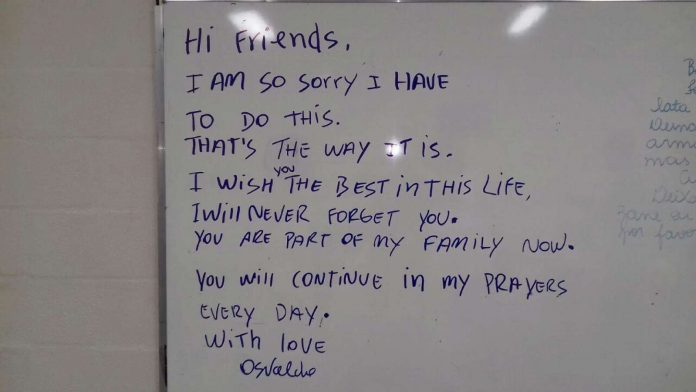 Hi Friends,
I AM SO SORRY I HAVE
TO DO THIS.
THAT'S THE WAY IT IS.
I WISH YOU THE BEST in THIS LIFE,
I Will NEVER FORGET YOU.
YOU ARE PART OF MY FAMILY NOW.
YOU WILL CONTINUE in MY PRAYERS
EVERY DAY.
With love
Osvaldo
lata
mas
por favo